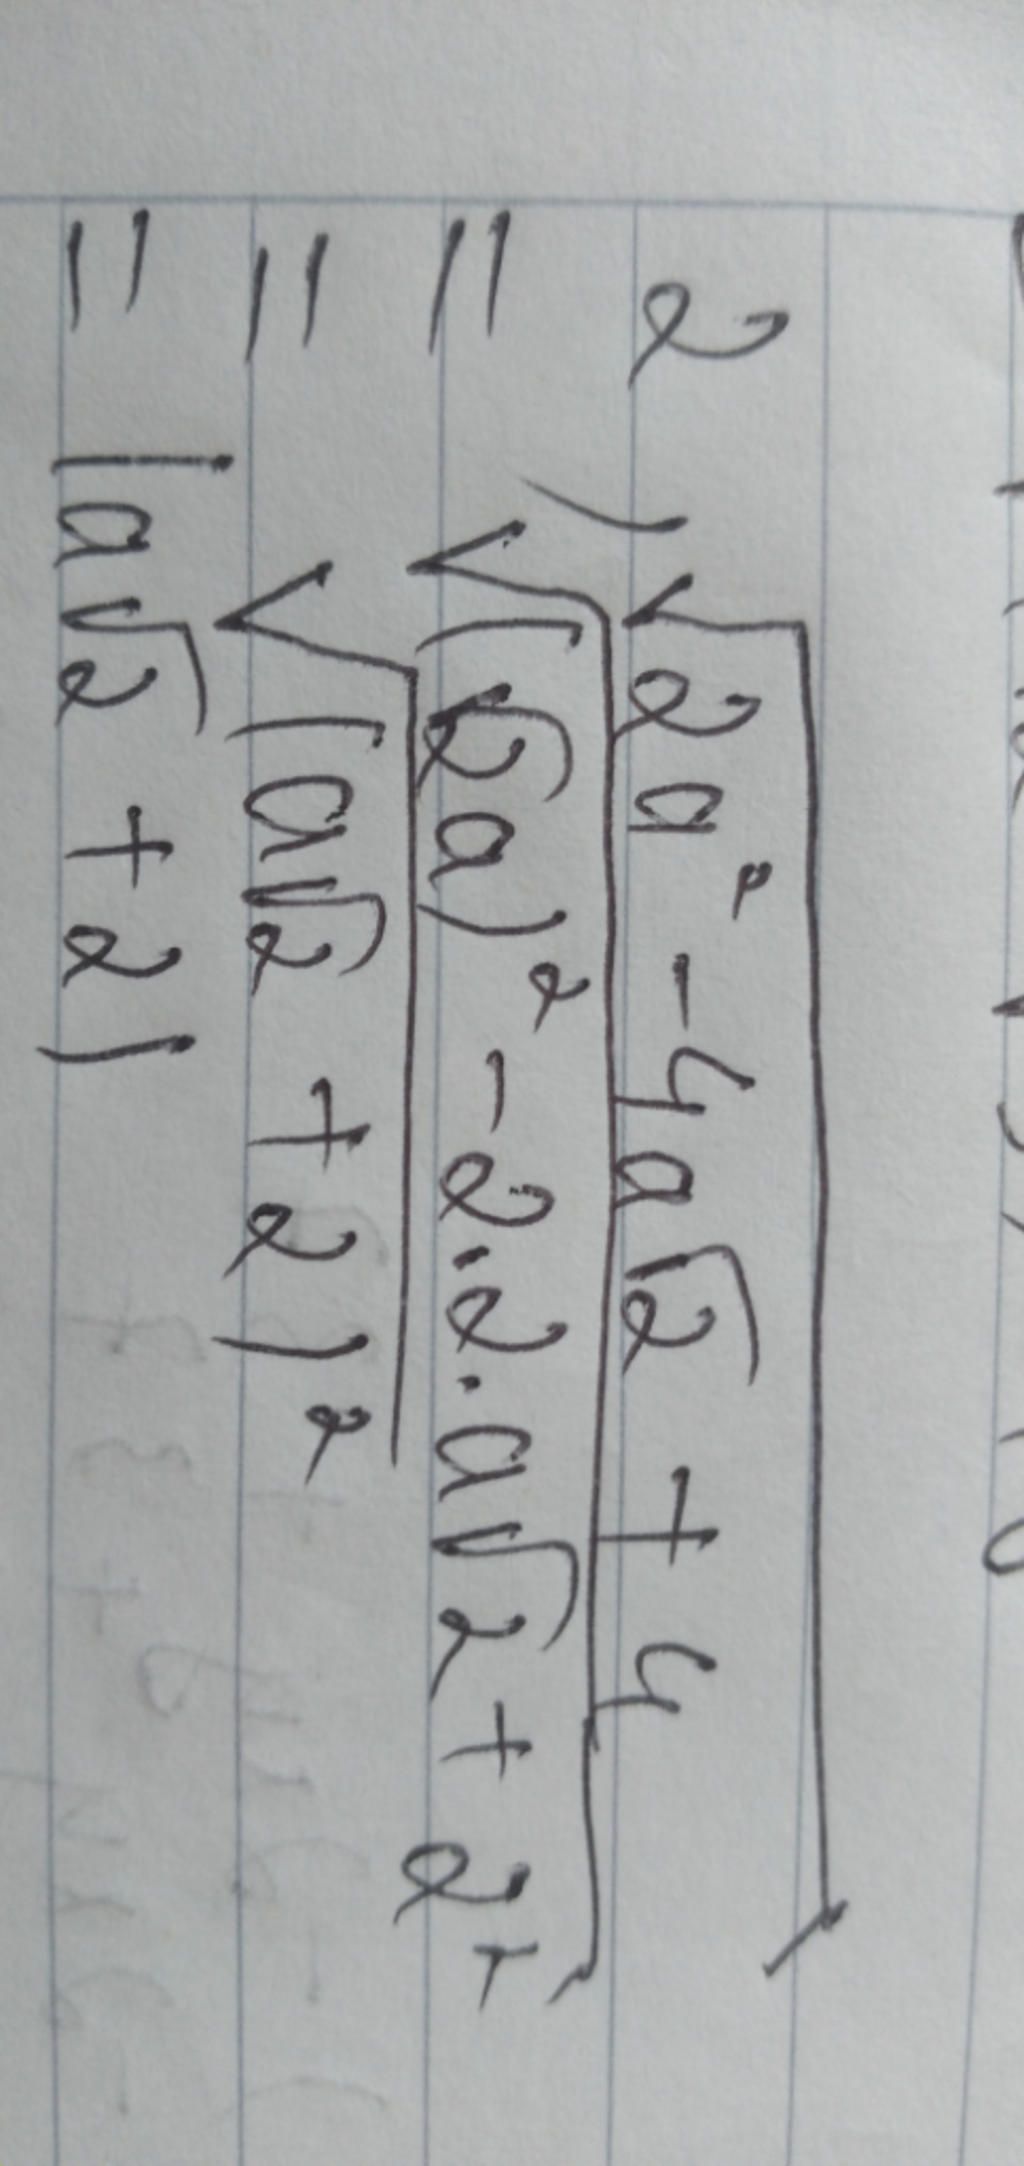 2) √(2a² - 4a√2 + 4)
= √((√2a)² - 2.2.a√2 + 2²)
= √((a√2 + 2)²)
= |a√2 + 2|